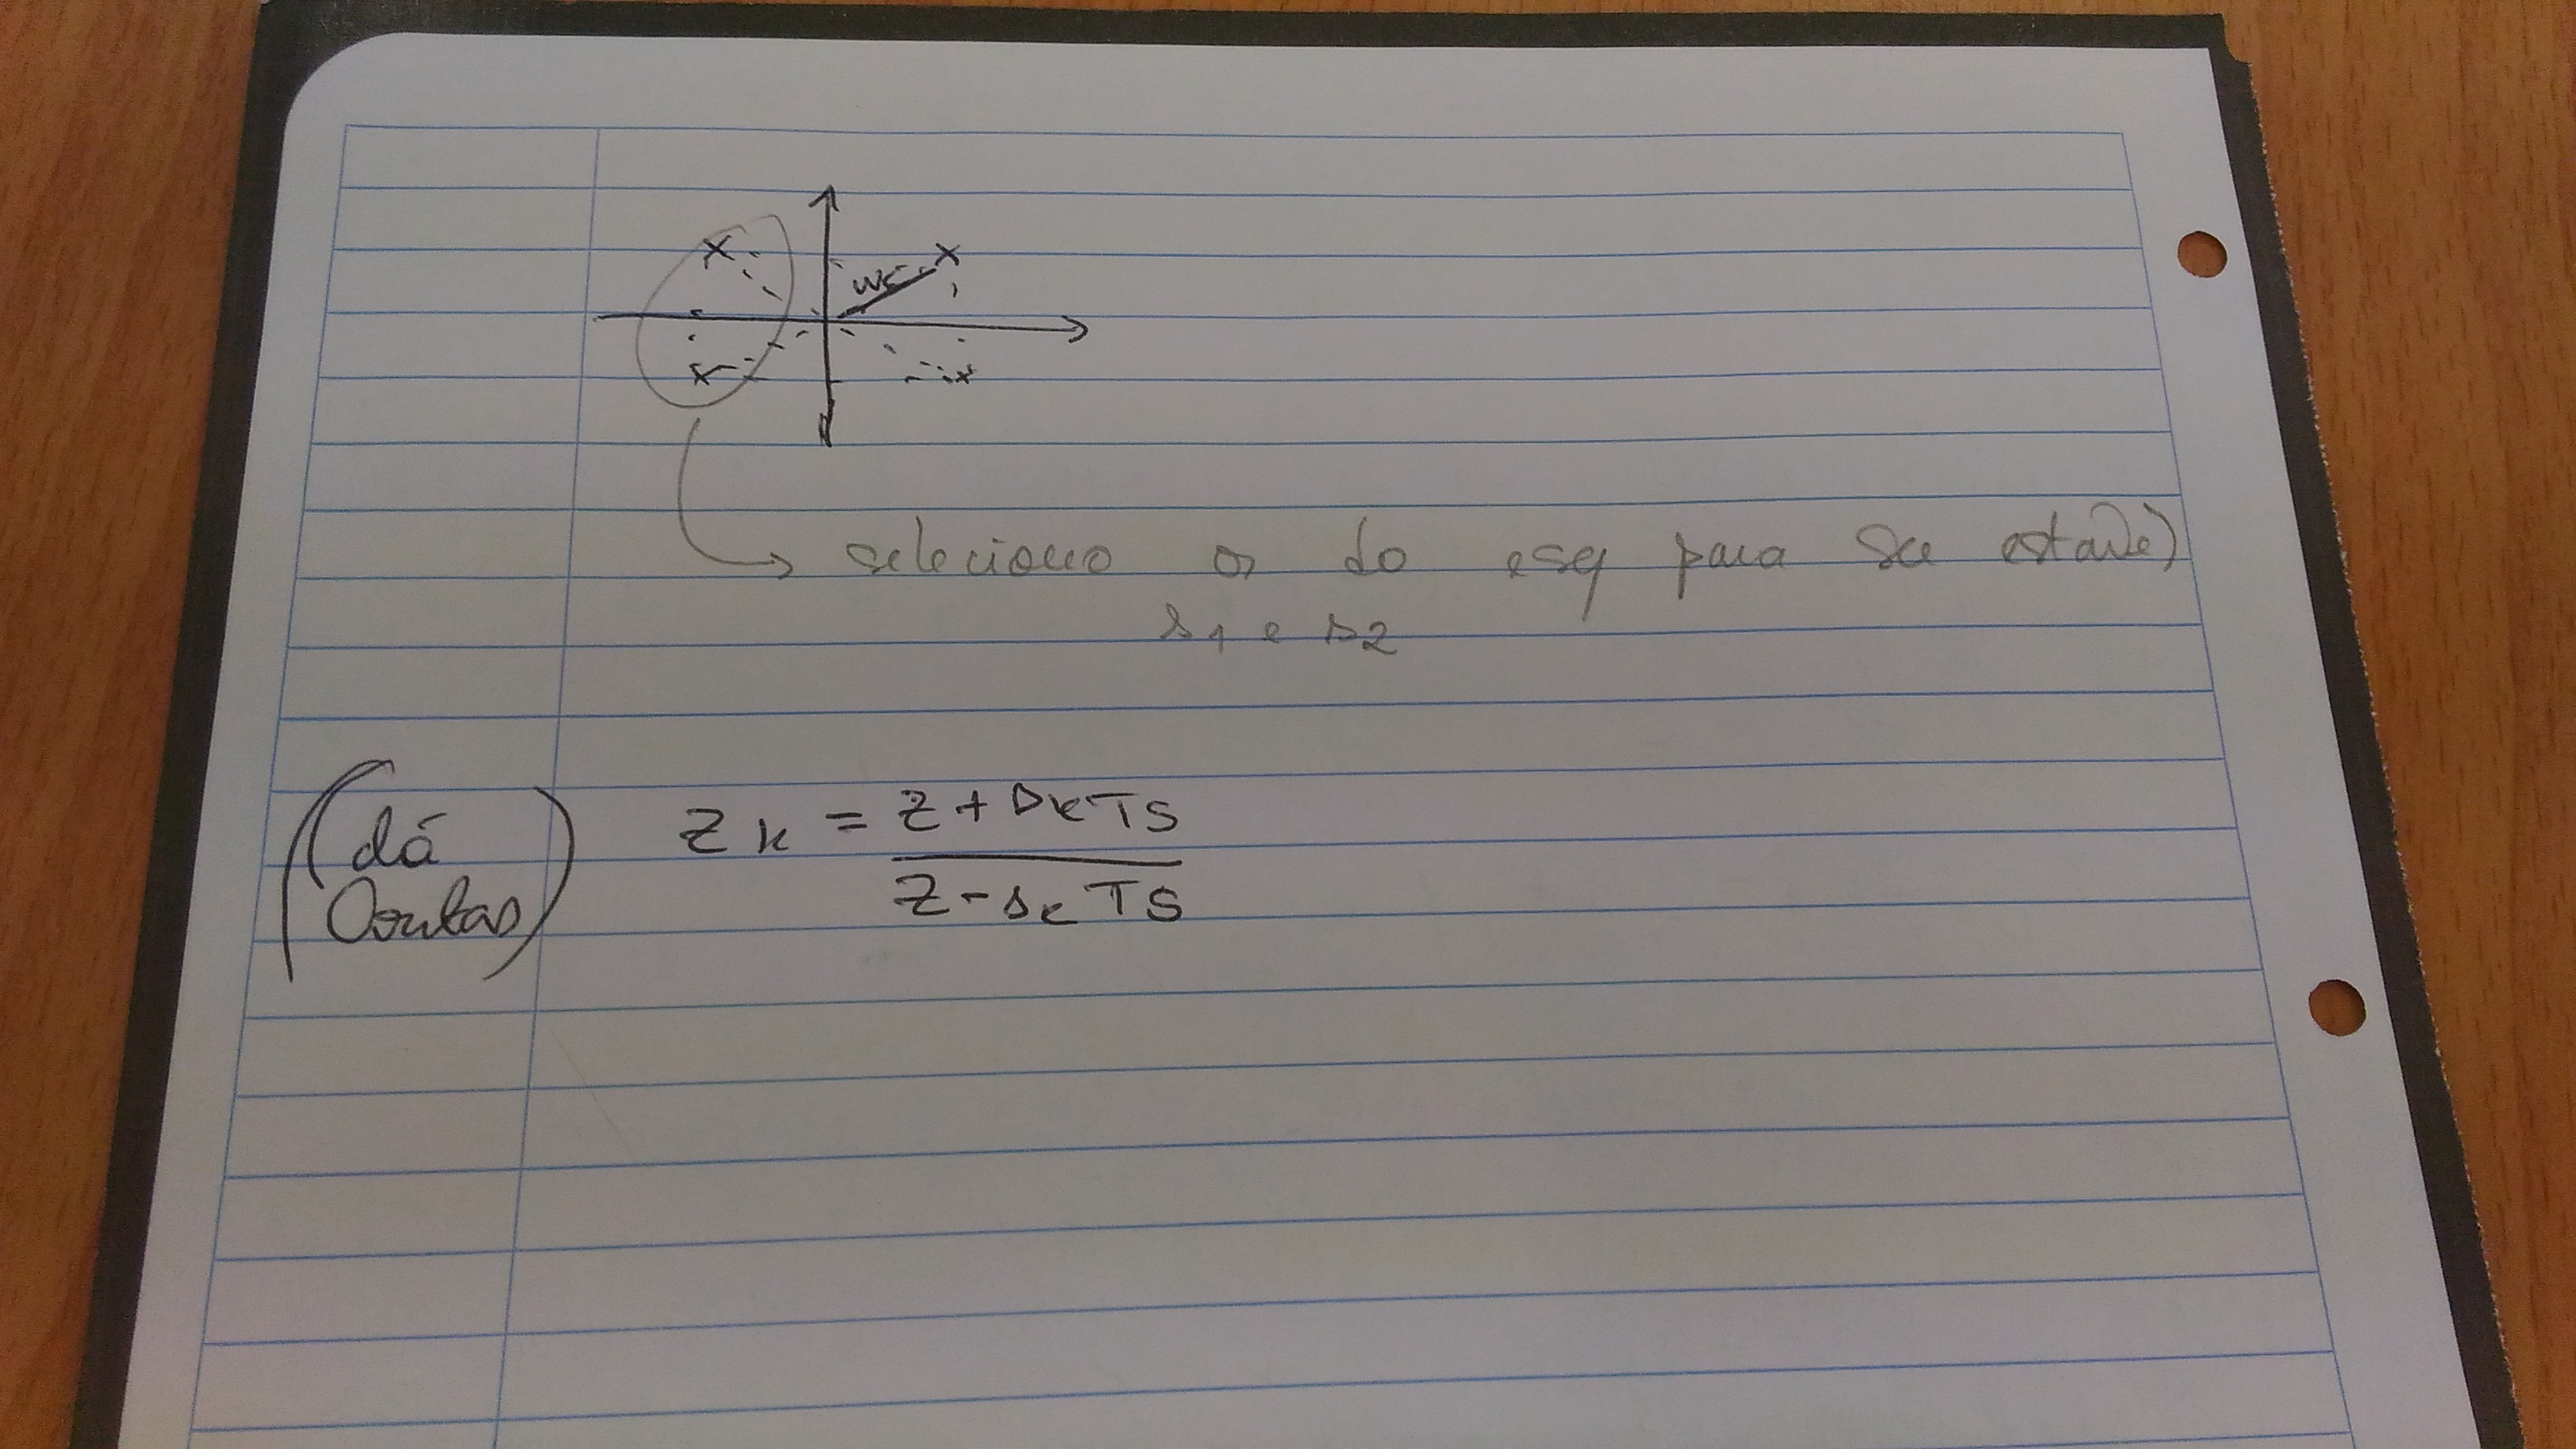 wc
seleciono os do esq para ser estável
s1 e s2
(dá
Zk = Z + skTS
Z - sk TS